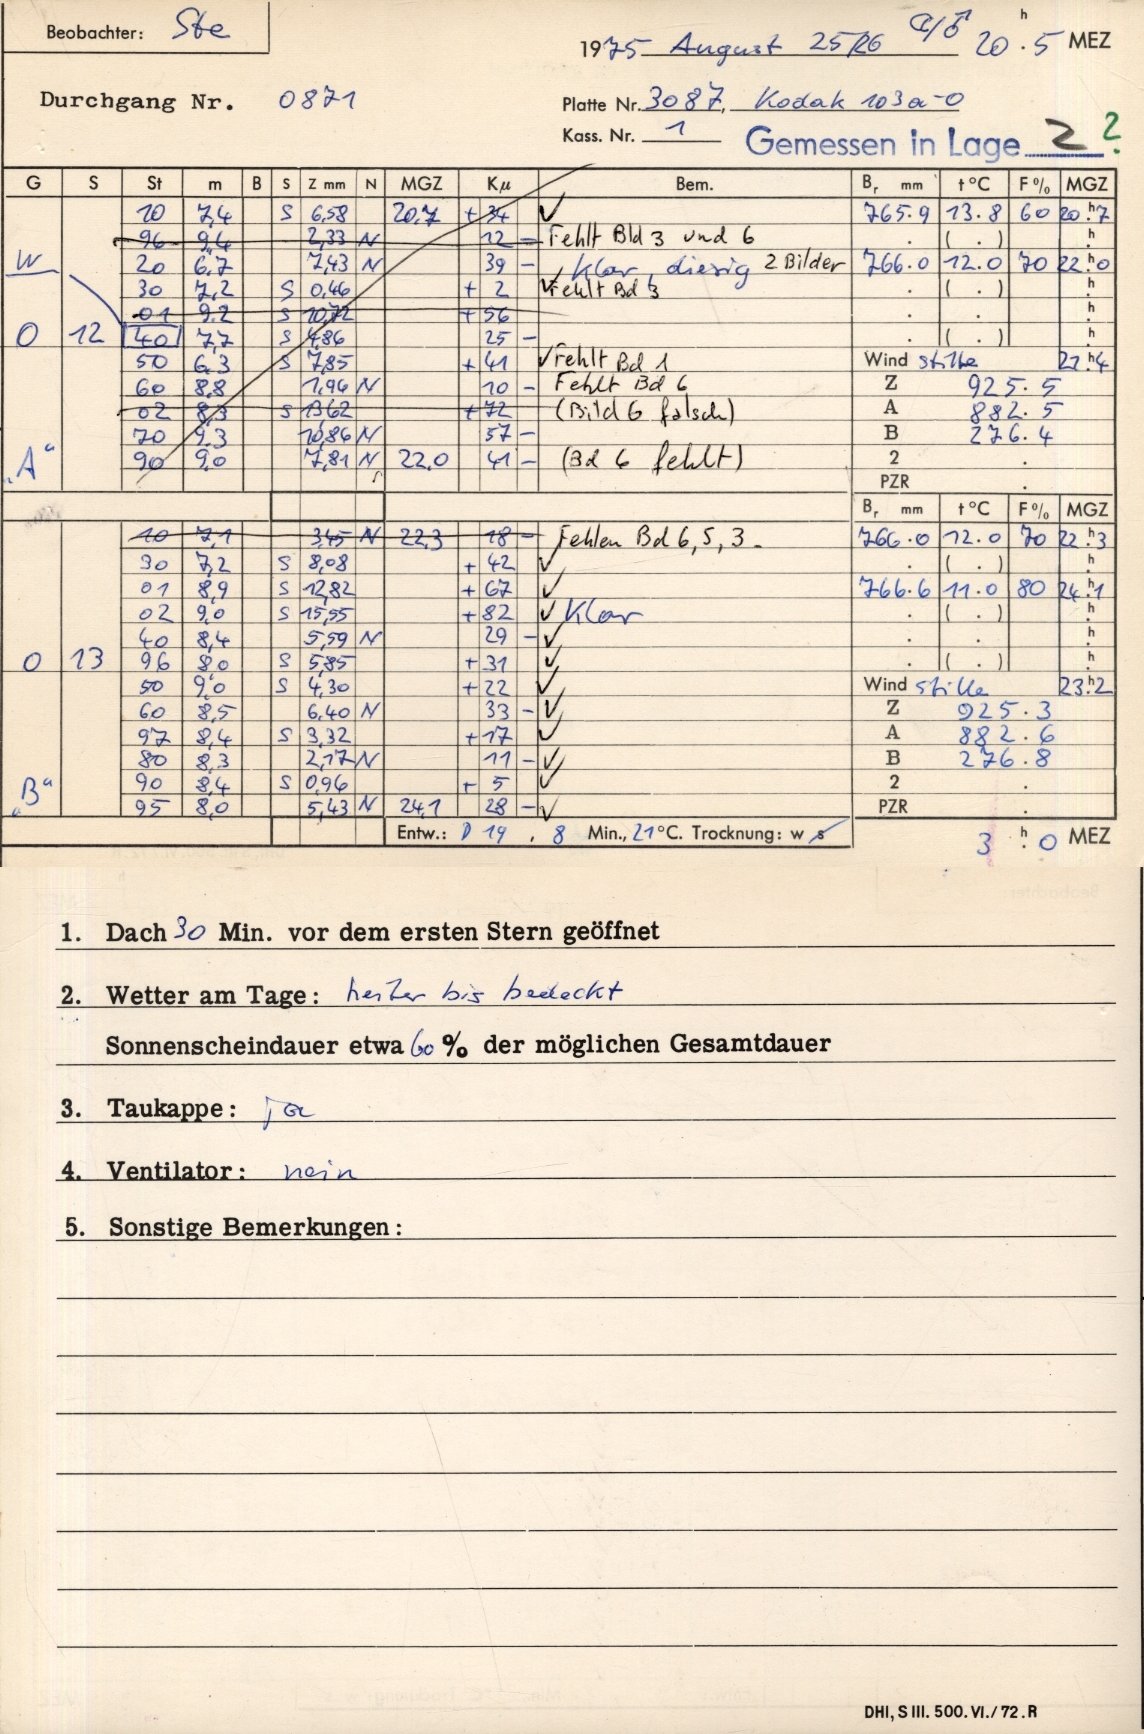 Beobachter: Ste
1975 August 25/26 ☾/♂ 20h.5 MEZ
Durchgang Nr. 0871
Platte Nr. 3087, Kodak 103a-O
Kass. Nr. 1
Gemessen in Lage 2 ?
G S St m B S Z mm N MGZ Kμ Bem. Br mm t°C F% MGZ
10 7,4 S 6,58 20,7 +34 ✓ 765.9 13.8 60 20h.7
96 9,4 2,33 N 12 - Fehlt Bld 3 und 6 . ( . ) h.
W 20 6,7 7,43 N 39 - Klar, diesig 2 Bilder 766.0 12.0 70 22h.0
30 7,2 S 0,46 + 2 ✓ Fehlt Bd 3 . ( . ) h.
01 9,2 S 10,72 +56 . . h.
O 12 40 7,7 S 4,86 25 - . ( . ) h.
50 6,3 S 7,85 +41 ✓ Fehlt Bd 1 Wind stille 21h.4
60 8,8 1,94 N 10 - Fehlt Bd 6 Z 925.5
02 8,3 S 13,62 +72 (Bild 6 falsch) A 882.5
70 9,3 10,86 N 57 - B 276.4
„A“ 90 9,0 7,81 N 22,0 41 - (Bd 6 fehlt) 2 .
PZR .
Br mm t°C F% MGZ
10 7,1 3,45 N 22,3 18 - Fehlen Bd 6, 5, 3. 766.0 12.0 70 22h.3
30 7,2 S 8,08 +42 ✓ . ( . ) h.
01 8,9 S 12,82 +67 ✓ 766.6 11.0 80 24h.1
02 9,0 S 15,55 +82 ✓ Klar . ( . ) h.
40 8,4 5,59 N 29 - ✓ . . h.
O 13 96 8,0 S 5,85 +31 ✓ . ( . ) h.
50 9,0 S 4,30 +22 ✓ Wind stille 23h.2
60 8,5 6,40 N 33 - ✓ Z 925.3
97 8,4 S 3,32 +17 ✓ A 882.6
80 8,3 2,17 N 11 - ✓ B 276.8
„B“ 90 8,4 S 0,96 + 5 ✓ 2 .
95 8,0 5,43 N 24,1 28 - ✓ PZR .
Entw.: D 19 , 8 Min., 21°C. Trocknung: w s
3h.0 MEZ
1. Dach 30 Min. vor dem ersten Stern geöffnet
2. Wetter am Tage: heiter bis bedeckt
Sonnenscheindauer etwa 60 % der möglichen Gesamtdauer
3. Taukappe: ja
4. Ventilator: nein
5. Sonstige Bemerkungen:
DHI, S III. 500. VI./72. R